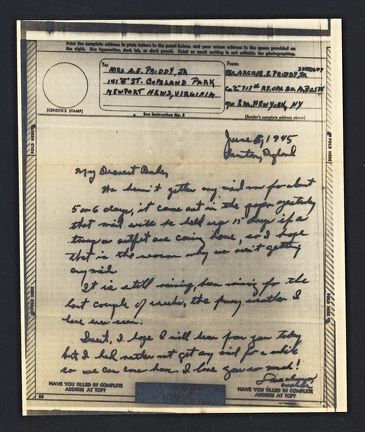 Print the complete address in plain letters in the panel below, and your return address in the space provided on the right. Use typewriter, dark ink, or dark pencil. Faint or small writing is not suitable for photographing.
To:
From:
MRS A.E. PRIDDY, JR
141 "B" ST. COPELAND PARK
NEWPORT NEWS, VIRGINIA
ARCHIE E. PRIDDY, JR
Co "C" 717
NEW YORK, NY
(CENSOR'S STAMP)
See Instruction No. 2
(Sender's complete address above)
June 5, 1945
My Dearest Babe,
We haven't gotten any mail now for about
5 or 6 days, it came out in the paper yesterday
that mail will be held up 15 days if a
outfit are coming home, so I hope
that is the reason why we ain't getting
any mail.
It is still raining, been raining for the
last couple of weeks, the weather I
have ever seen.
Sweet, I hope I will hear from you today
but I had rather not get any mail for a while
so we can come home. I love you so much!
HAVE YOU FILLED IN COMPLETE
ADDRESS AT TOP?
HAVE YOU FILLED IN COMPLETE
ADDRESS AT TOP?